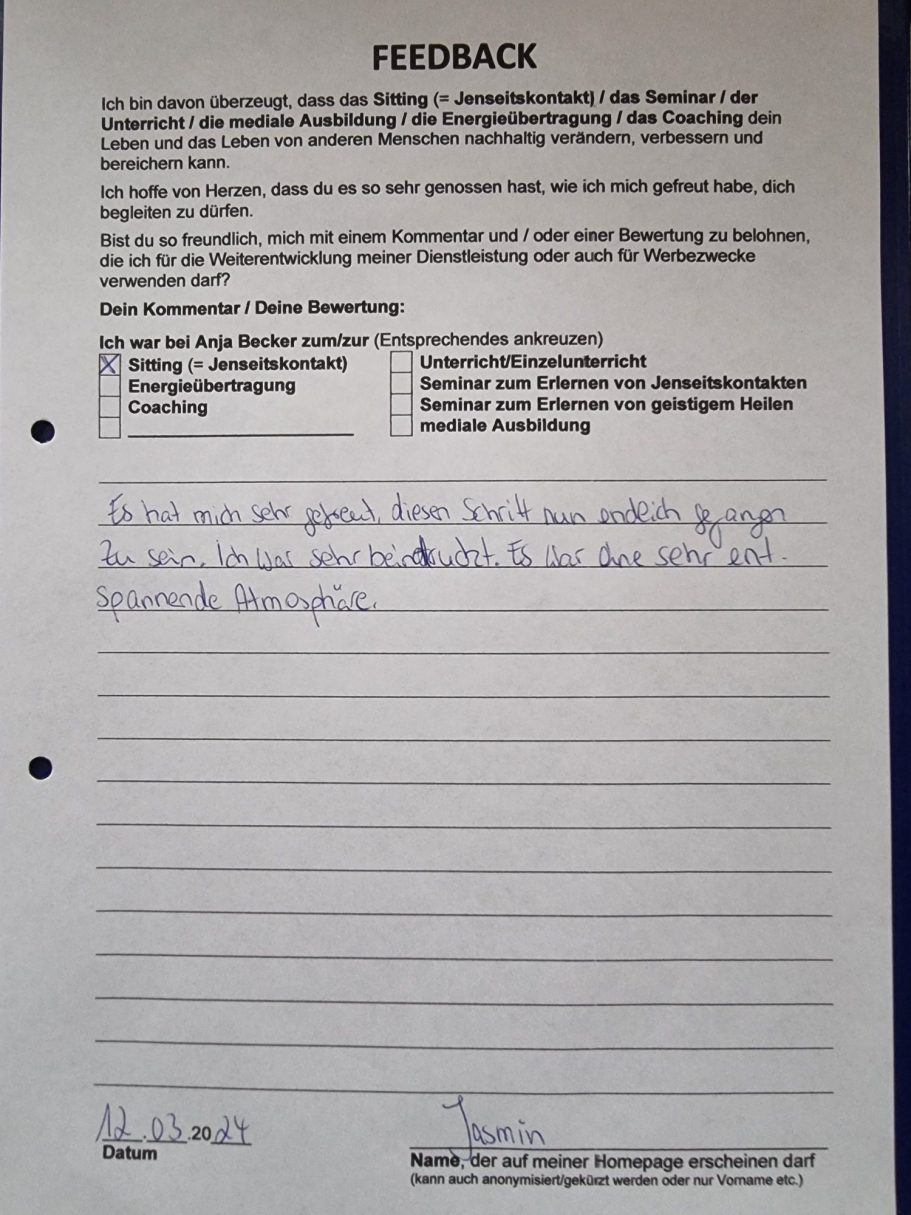 FEEDBACK
Ich bin davon überzeugt, dass das Sitting (= Jenseitskontakt) / das Seminar / der
Unterricht / die mediale Ausbildung / die Energieübertragung / das Coaching dein
Leben und das Leben von anderen Menschen nachhaltig verändern, verbessern und
bereichern kann.
Ich hoffe von Herzen, dass du es so sehr genossen hast, wie ich mich gefreut habe, dich
begleiten zu dürfen.
Bist du so freundlich, mich mit einem Kommentar und / oder einer Bewertung zu belohnen,
die ich für die Weiterentwicklung meiner Dienstleistung oder auch für Werbezwecke
verwenden darf?
Dein Kommentar / Deine Bewertung:
Ich war bei Anja Becker zum/zur (Entsprechendes ankreuzen)
X Sitting (= Jenseitskontakt)
Energieübertragung
Coaching
Unterricht/Einzelunterricht
Seminar zum Erlernen von Jenseitskontakten
Seminar zum Erlernen von geistigem Heilen
mediale Ausbildung
Es hat mich sehr gefreut, diesen Schritt nun endlich gegangen
zu sein. Ich war sehr beindruckt. Es war eine sehr ent-
spannende Atmosphäre.
12.03.2024
Datum
Jasmin
Name, der auf meiner Homepage erscheinen darf
(kann auch anonymisiert/gekürzt werden oder nur Vorname etc.)